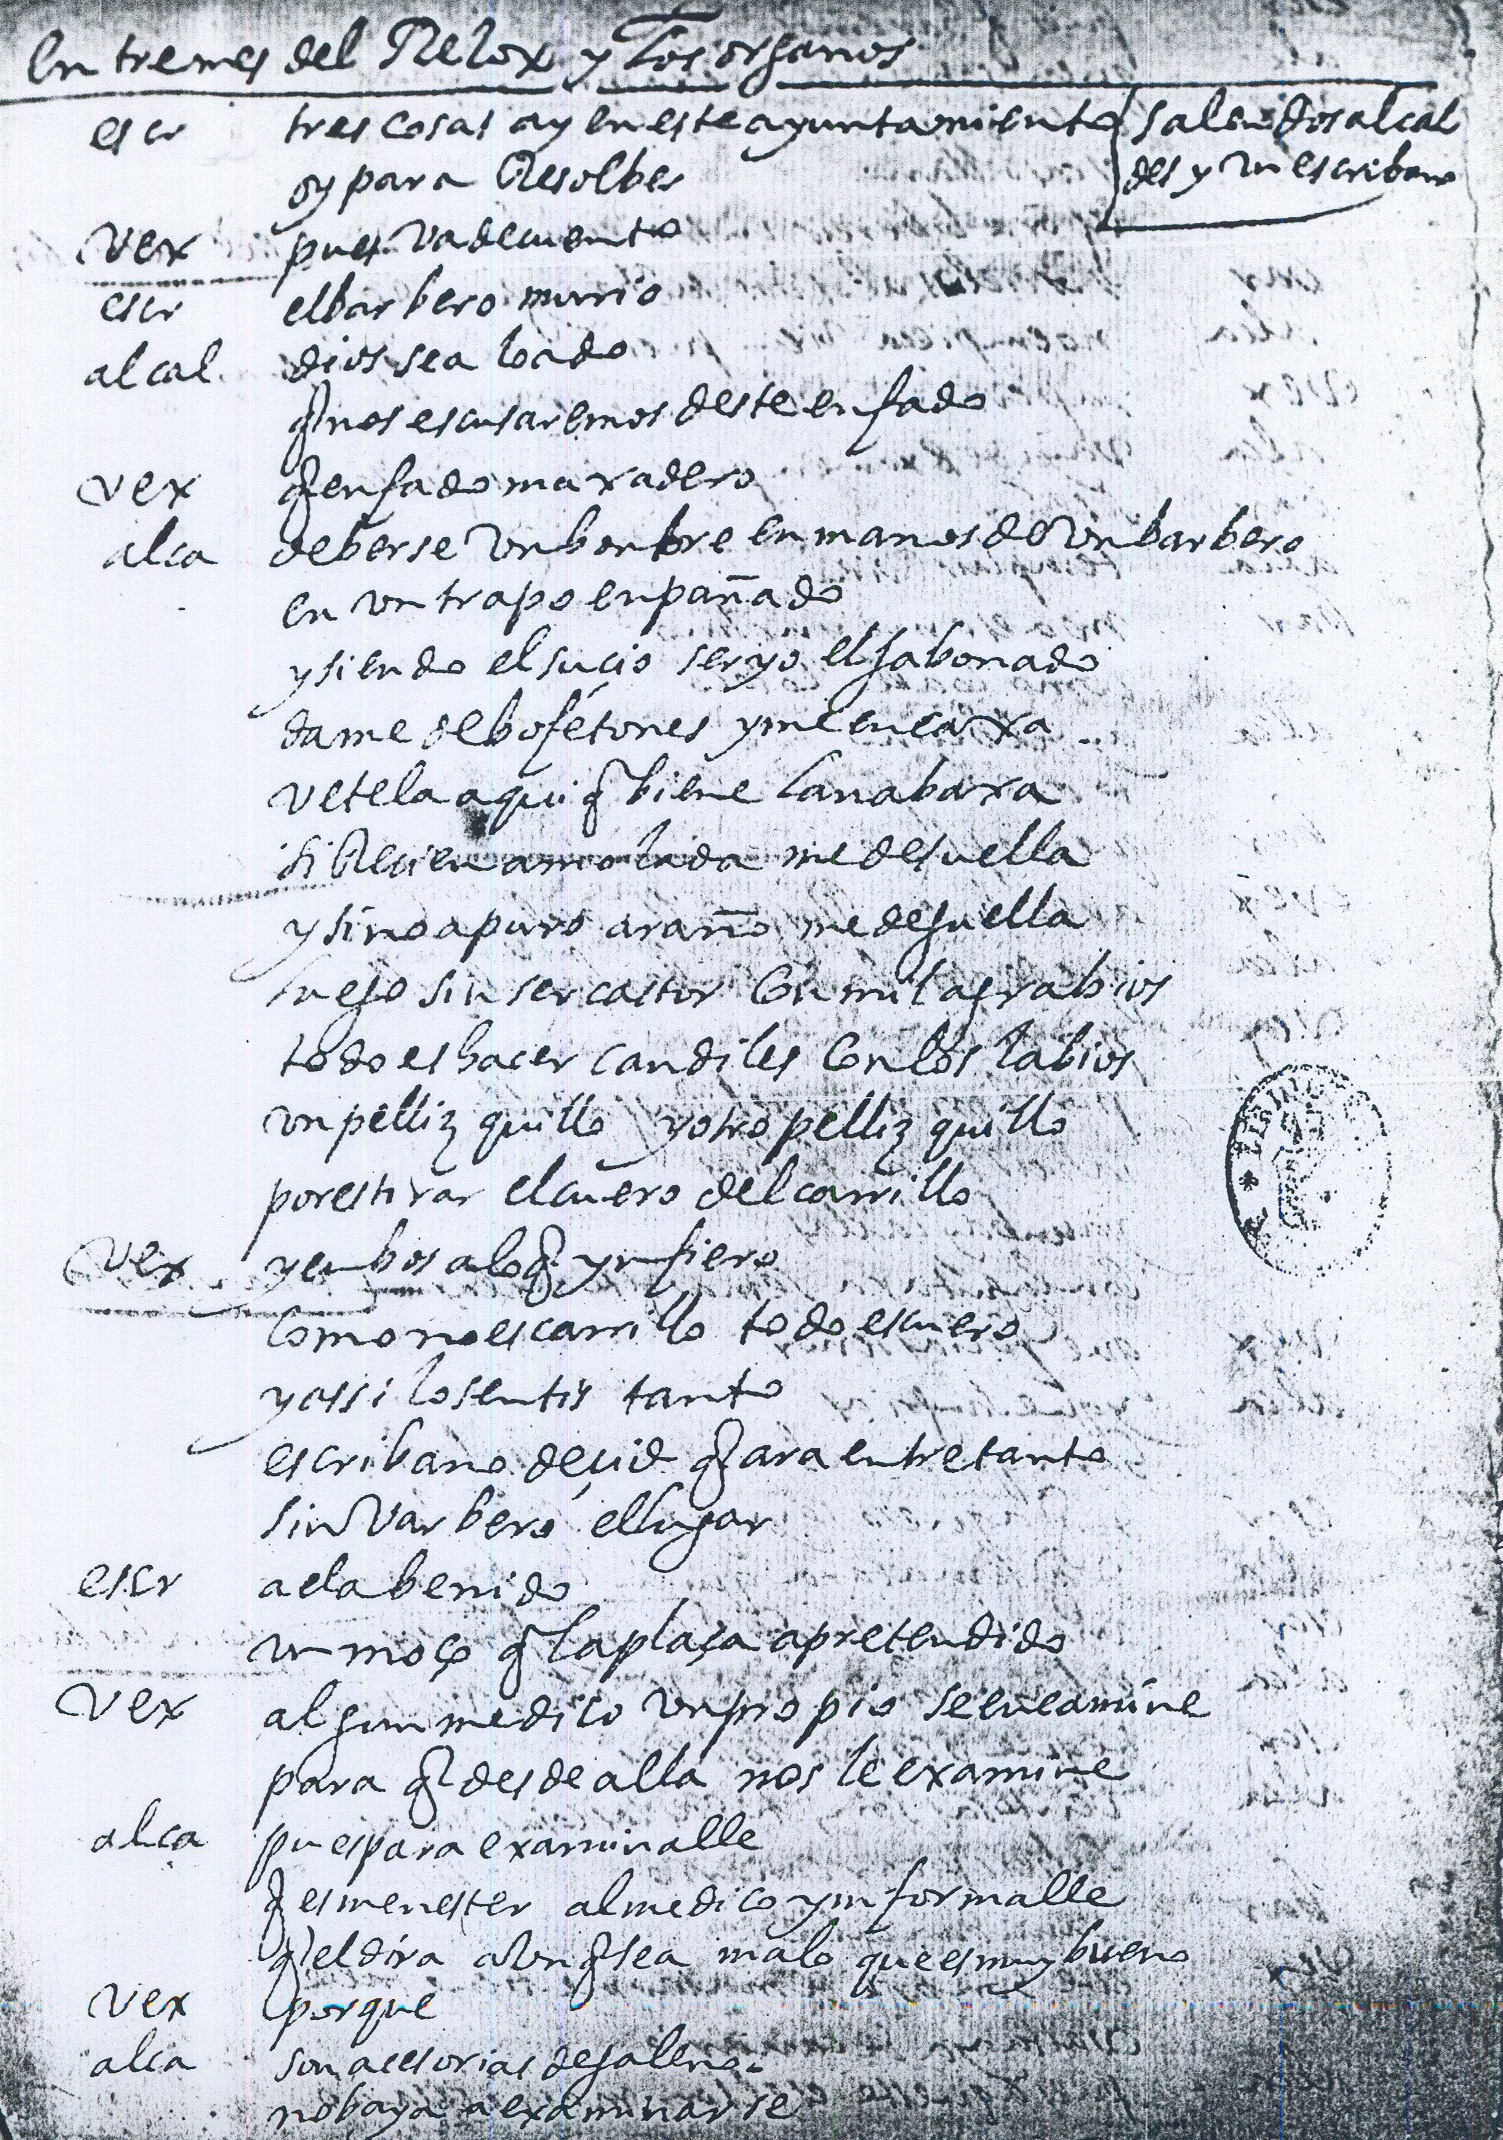 Entremes del Relox y Los organos
salen dos alcal
des y un escribano
escr tres cosas ay en este ayuntamiento
oy para Resolber
vex pues va de cuento
escr el barbero murio
alcal dios sea loado
q nos escusaremos deste enfado
vex q enfado maxadero
alca de berse un honbre en manos de un barbero
en un trapo enpañado
y siendo el sucio ser yo el jabonado
dame de bofetones y me encaxa
vetela aqui q biene la nabaxa
si Recien amolada me desuella
y si no a puro araño me deguella
luego sin ser castor con mil agrabios
todo es hacer candiles con los labios
un pellizquillo y otro pellizquillo
por estirar el cuero del carrillo
vex y en bos a lo q ynfiero
como no es carrillo todo es cuero
y assi lo sentis tanto
escribano decid q ara entretanto
sin varbero el lugar
escr aela benido
un moço q la plaça a pretendido
vex algun medico un propio se encamine
para q desde alla nos le examine
alca pues para examinalle
q es menester al medico ynformalle
q el dira aunq sea malo que es muy bueno
vex porque
alca son acesorias de galeno
no baya a examinarse